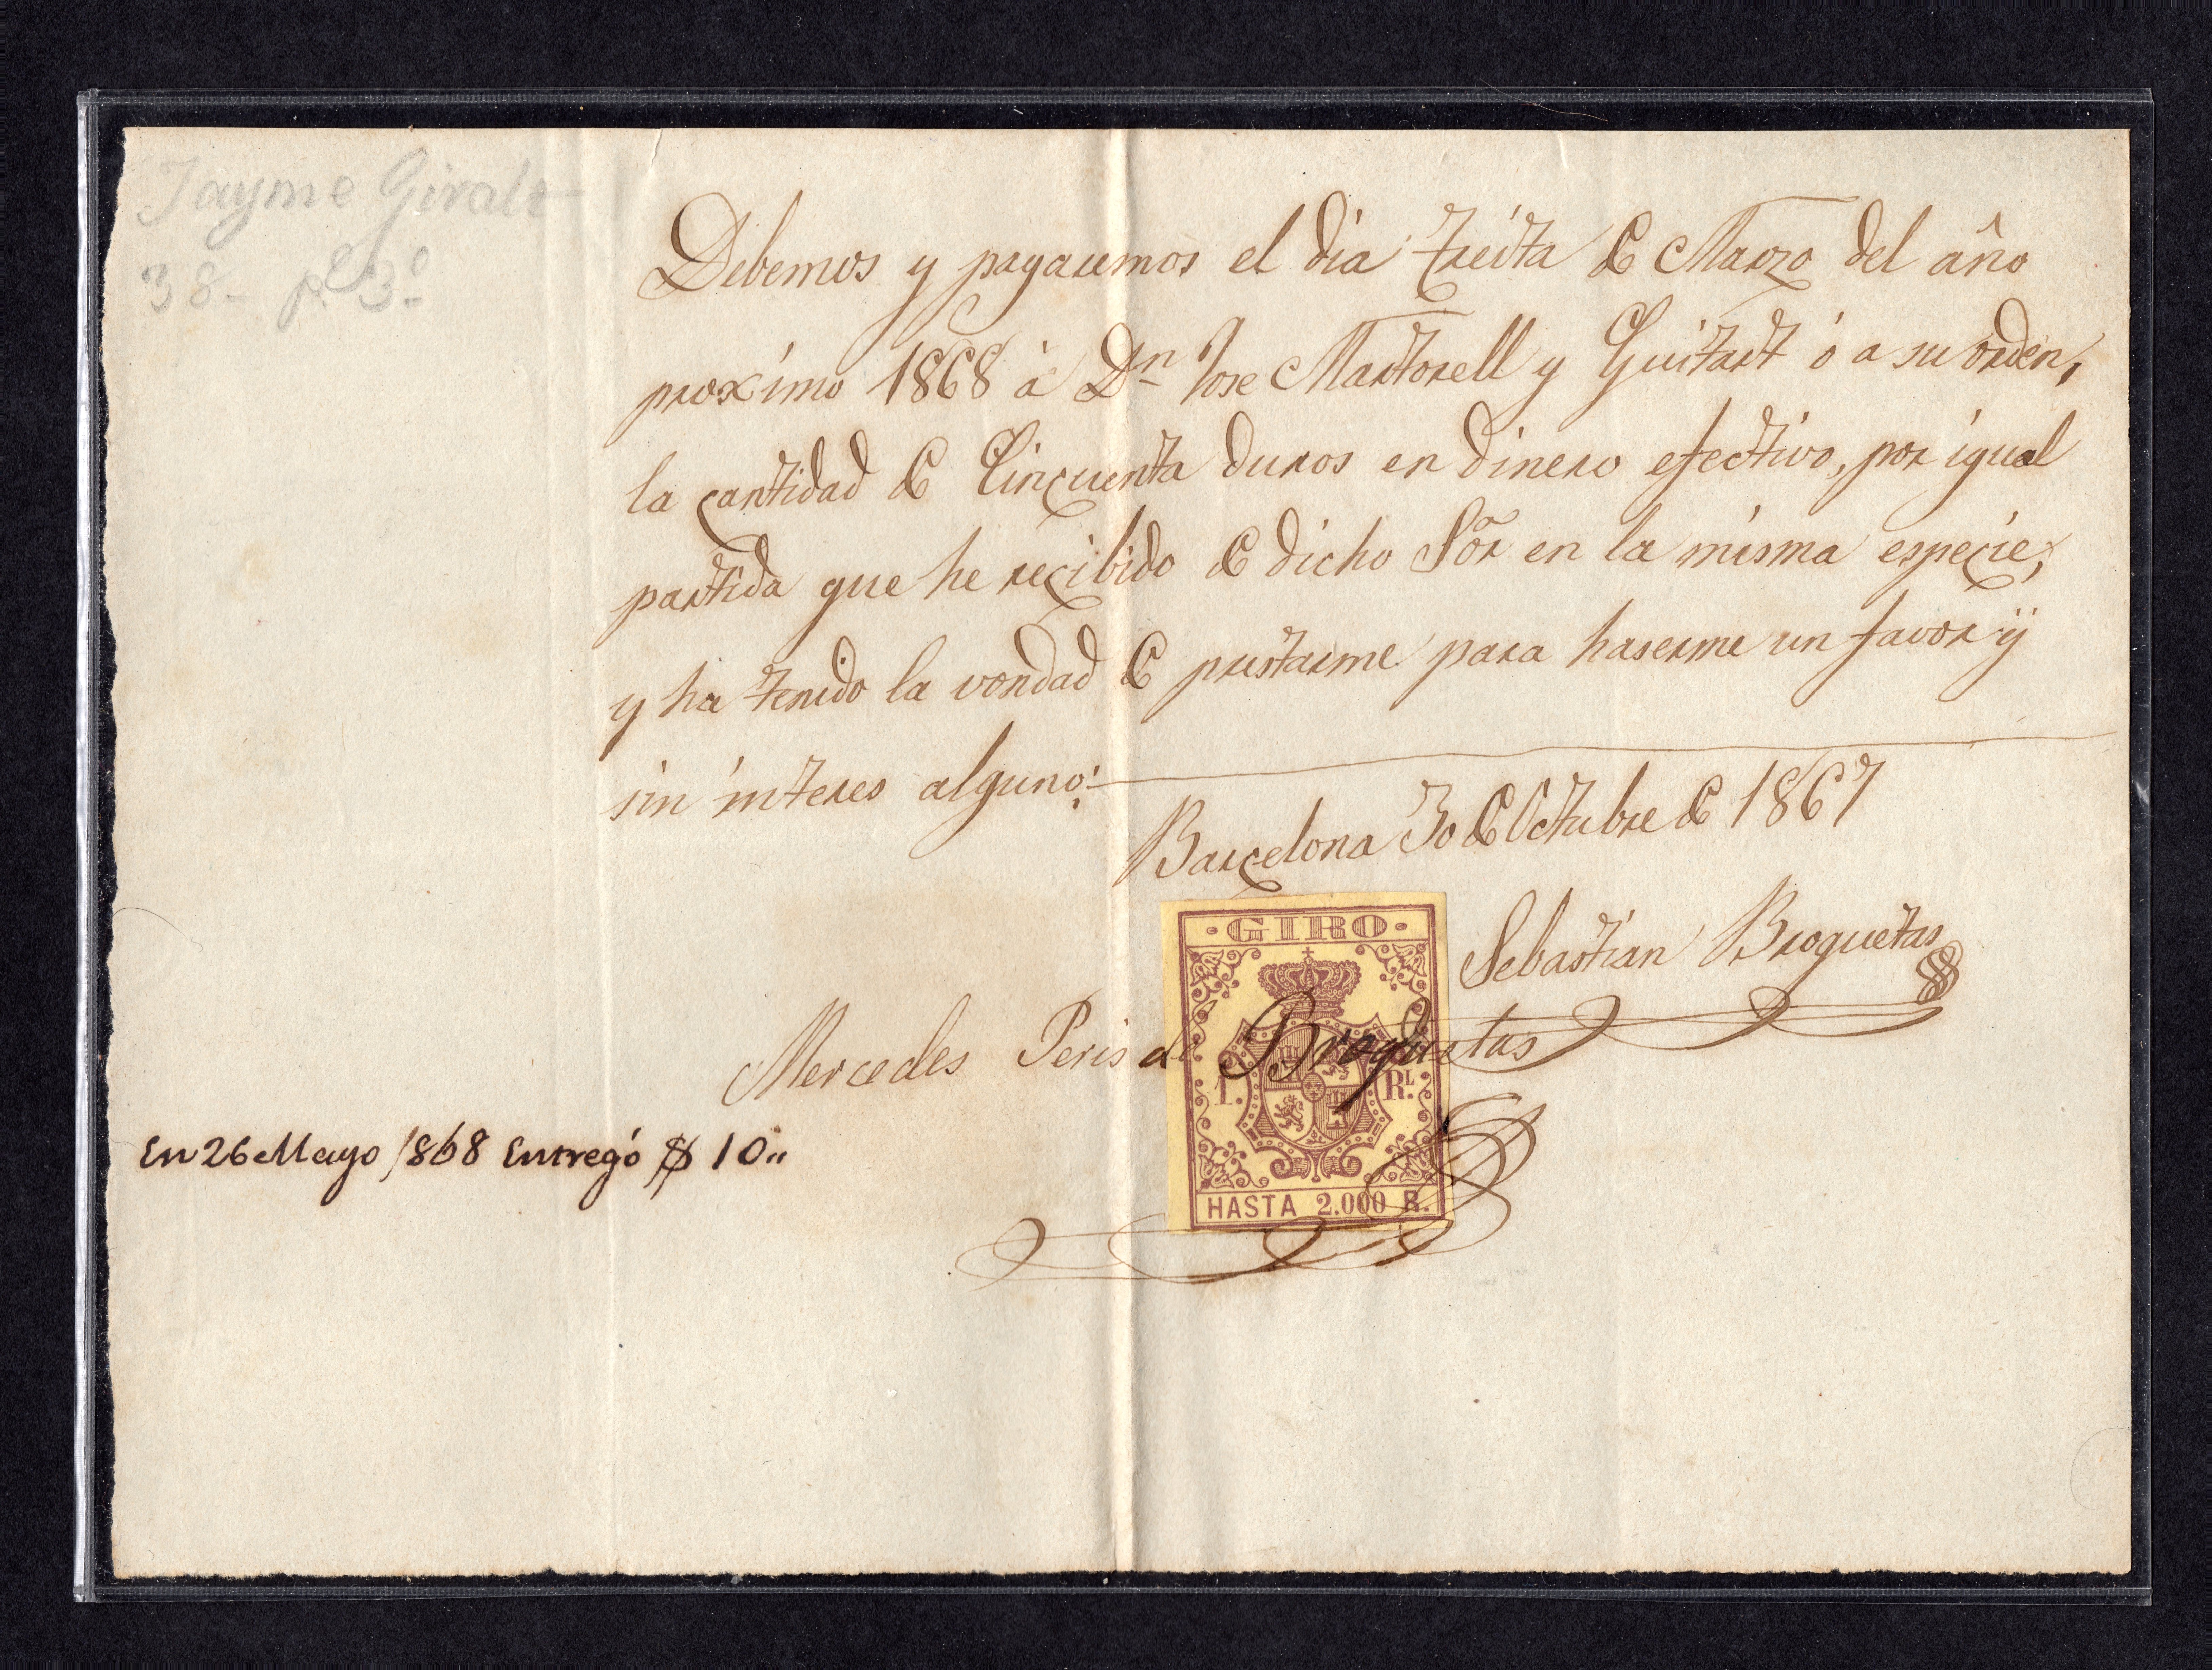 Jayme Giralt
38- p.l 3.o
Debemos y pagaremos el dia treita de Marzo del año
proximo 1868 á Dn Jose Martorell y Guitart ó a su orden,
la cantidad de Cincuenta duros en dinero efectivo, por igual
partida que he recibido de dicho Sor en la misma especie,
y ha tenido la vondad de prestarme para haserme un favor ÿ
sin interes alguno:
Barcelona 30 de Octubre de 1867
Sebastian Broguetas
Mercedes Peris de Broguetas
En 26 Mayo 1868 Entregó $ 10"
·GIRO·
1. RL.
HASTA 2.000 R.